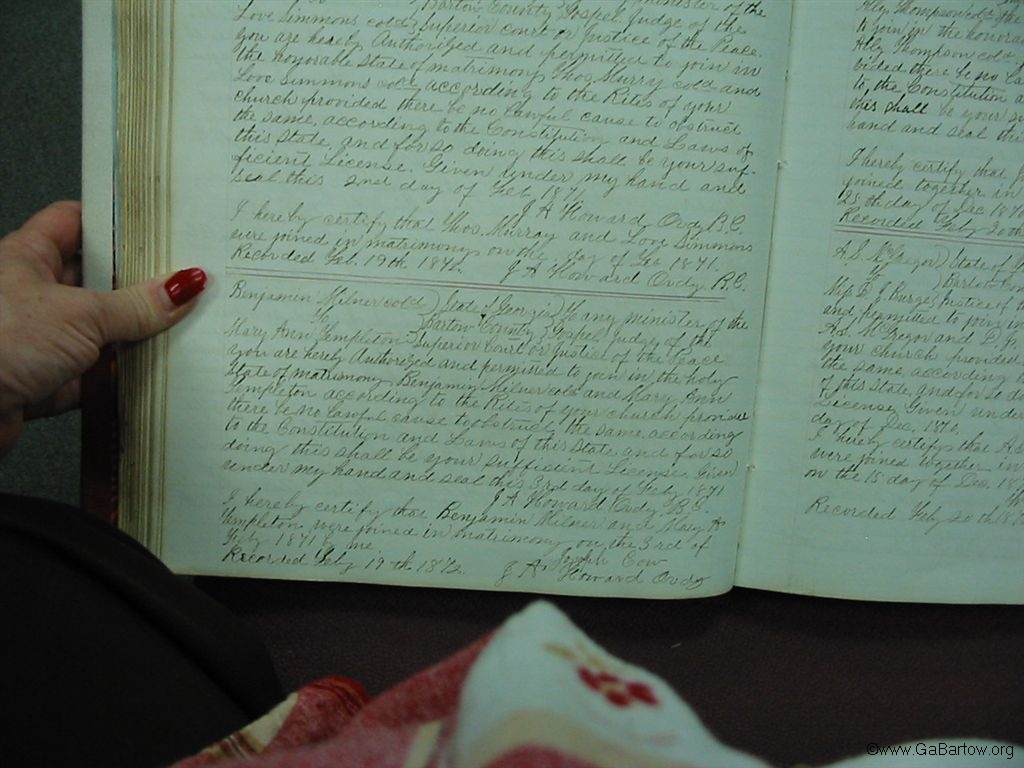 minister of the
Bartow County Gospel Judge of the
Love Simmons cold Superior court or Justice of the Peace
you are hereby Authorized and permitted to join in
the honorable State of matrimony Thos Murry cold and
Love Simmons cold according to the Rites of your
church provided there be no Lawful cause to obstruct
the same, according to the Constitution and Laws of
this State, and for so doing this shall be your suf-
ficient License. Given under my hand and
seal this 2nd day of Feb 1871
J A Howard Ordy B.C.
I hereby certify that Thos. Murray and Love Simmons
were joined in matrimony on the day of Feb 1871.
Recorded Feb. 19th 1872. J A Howard Ordy B.C.
Benjamin Milner cold State of Georgia To any minister of the
Bartow County Gospel Judge of the
Mary Ann Templeton Superior Court or Justice of the Peace
you are hereby Authorized and permitted to join in the holy
State of matrimony Benjamin Milner cold and Mary Ann
Templeton according to the Rites of your church provided
there be no Lawful cause to obstruct the same, according
to the Constitution and Laws of this State and for so
doing this shall be your Sufficient License. Given
under my hand and seal this 3rd day of Feb, 1871
J A Howard Ordy B.C.
I hereby certify that Benjamin Milner and Mary A
Templeton were joined in matrimony on the 3rd of
Feby 1871 by me, Joseph Cow
Recorded Feby 19th 1872. J A Howard Ordy
Aley Thompson cold The
to join in the honora
Aley Thompson cold
vided there be no La
to, the Constitution a
this shall be your su
hand and seal this
I hereby certify that
joined together in
25th day of Dec 1870
Recorded Feby 20th
A.S. McGregor State of
Bartow Coun
Mrs E. F. Burge Justice of th
and permitted to join in
A.S. McGregor and E. F.
your church provided
the same according
of this State, and for so do
License Given under
day of Dec, 1870,
I hereby certify that A.S
were joined together in
on the 15 day of Dec. 18
Recorded Feby 20th 18
©www.GaBartow.org